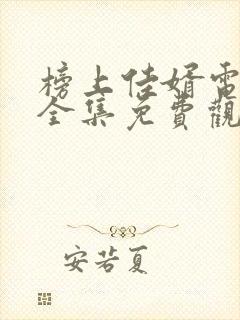 榜上佳婿電
全集免費觀
安若夏